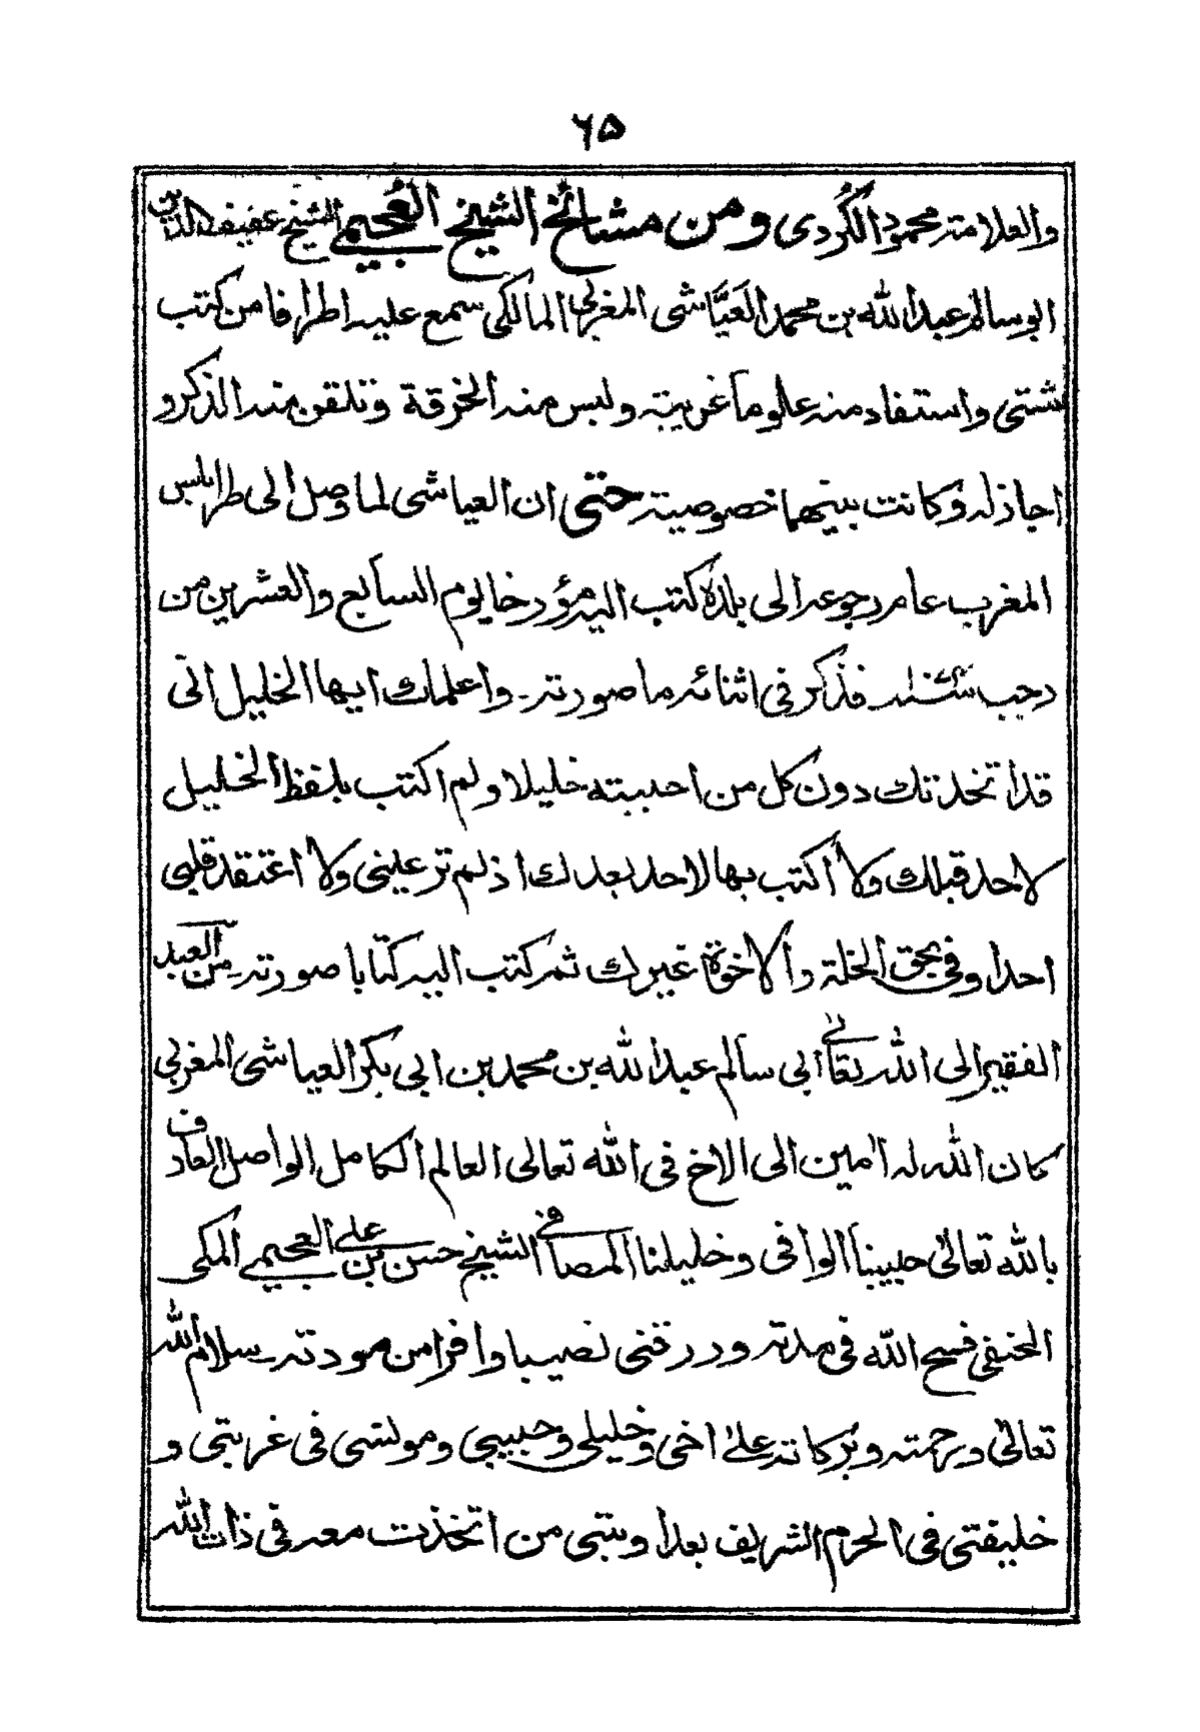 ٦٥
والعلامة محمود الكُردى ومن مشائخ الشيخ العُجيمى الشيخ عفيف الدين
ابو سالم عبد الله بن محمد العَيَّاشى المغربى المالكى سمع عليه اطرافا من كتب
شتى واستفاد منه علوما غريبة ولبس منه الخرقة وتلقن منه الذكر و
اجاز له وكانت بينهما خصوصية حتى ان العياشى لما وصل الى طرابلس
المغرب عام رجوعه الى بلده كتب اليه مؤرخا يوم السابع والعشرين من
رجب فذكر فى اثنائه ما صورته۔ واعلمك ايها الخليل انى
قد اتخذتك دون كل من احببته خليلا ولم اكتب بلفظ الخليل
لاحد قبلك ولا اكتب بها لاحد بعدك اذ لم تر عينى ولا اعتقد قلبى
احدا وفى بحق الخلة والاخوة غيرك ثم كتب اليه كتابا صورته۔ من العبد
الفقير الى الله تعالى ابى سالم عبد الله بن محمد بن ابى بكر العياشى المغربى
كان الله له امين الى الاخ فى الله تعالى العالم الكامل الواصل العارف
بالله تعالىٰ حبيبنا الوافى وخليلنا المصافى الشيخ حسن بن على العجيمى المكى
الحنفى فسح الله فى مدته ورزقنى نصيبا وافرا من مودته۔ سلام الله
تعالىٰ ورحمته وبركاته علىٰ اخى وخليلى وحبيبى ومونسى فى غربتى و
خليفتى فى الحرم الشريف بعد اوبتى من اتخذت معه فى ذات الله